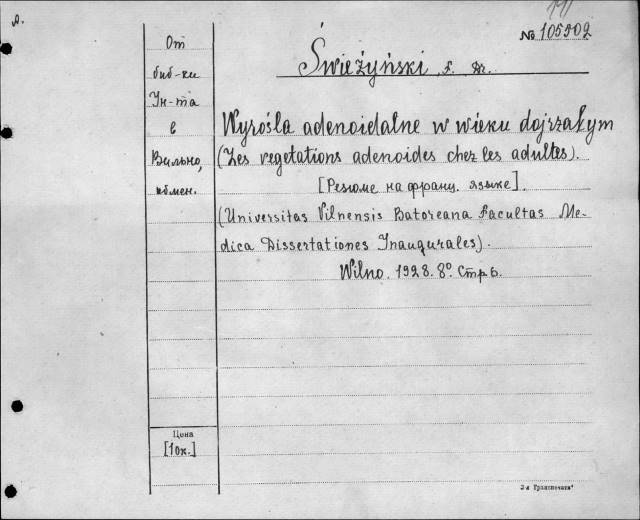 № 105902
От
биб-ки
Ун-та
в
Вильно,
обмен.
Świeżyński, F. Dr.
Wyrośla adenoidalne w wieku dojrzałym
(Les vegetations adenoides chez les adultes).
[Резюме на франц. языке].
(Universitas Vilnensis Batoreana Facultas Me-
dica Dissertationes Inaugurales).
Wilno. 1928. 8º. Стр 6.
Цена
[10к.]